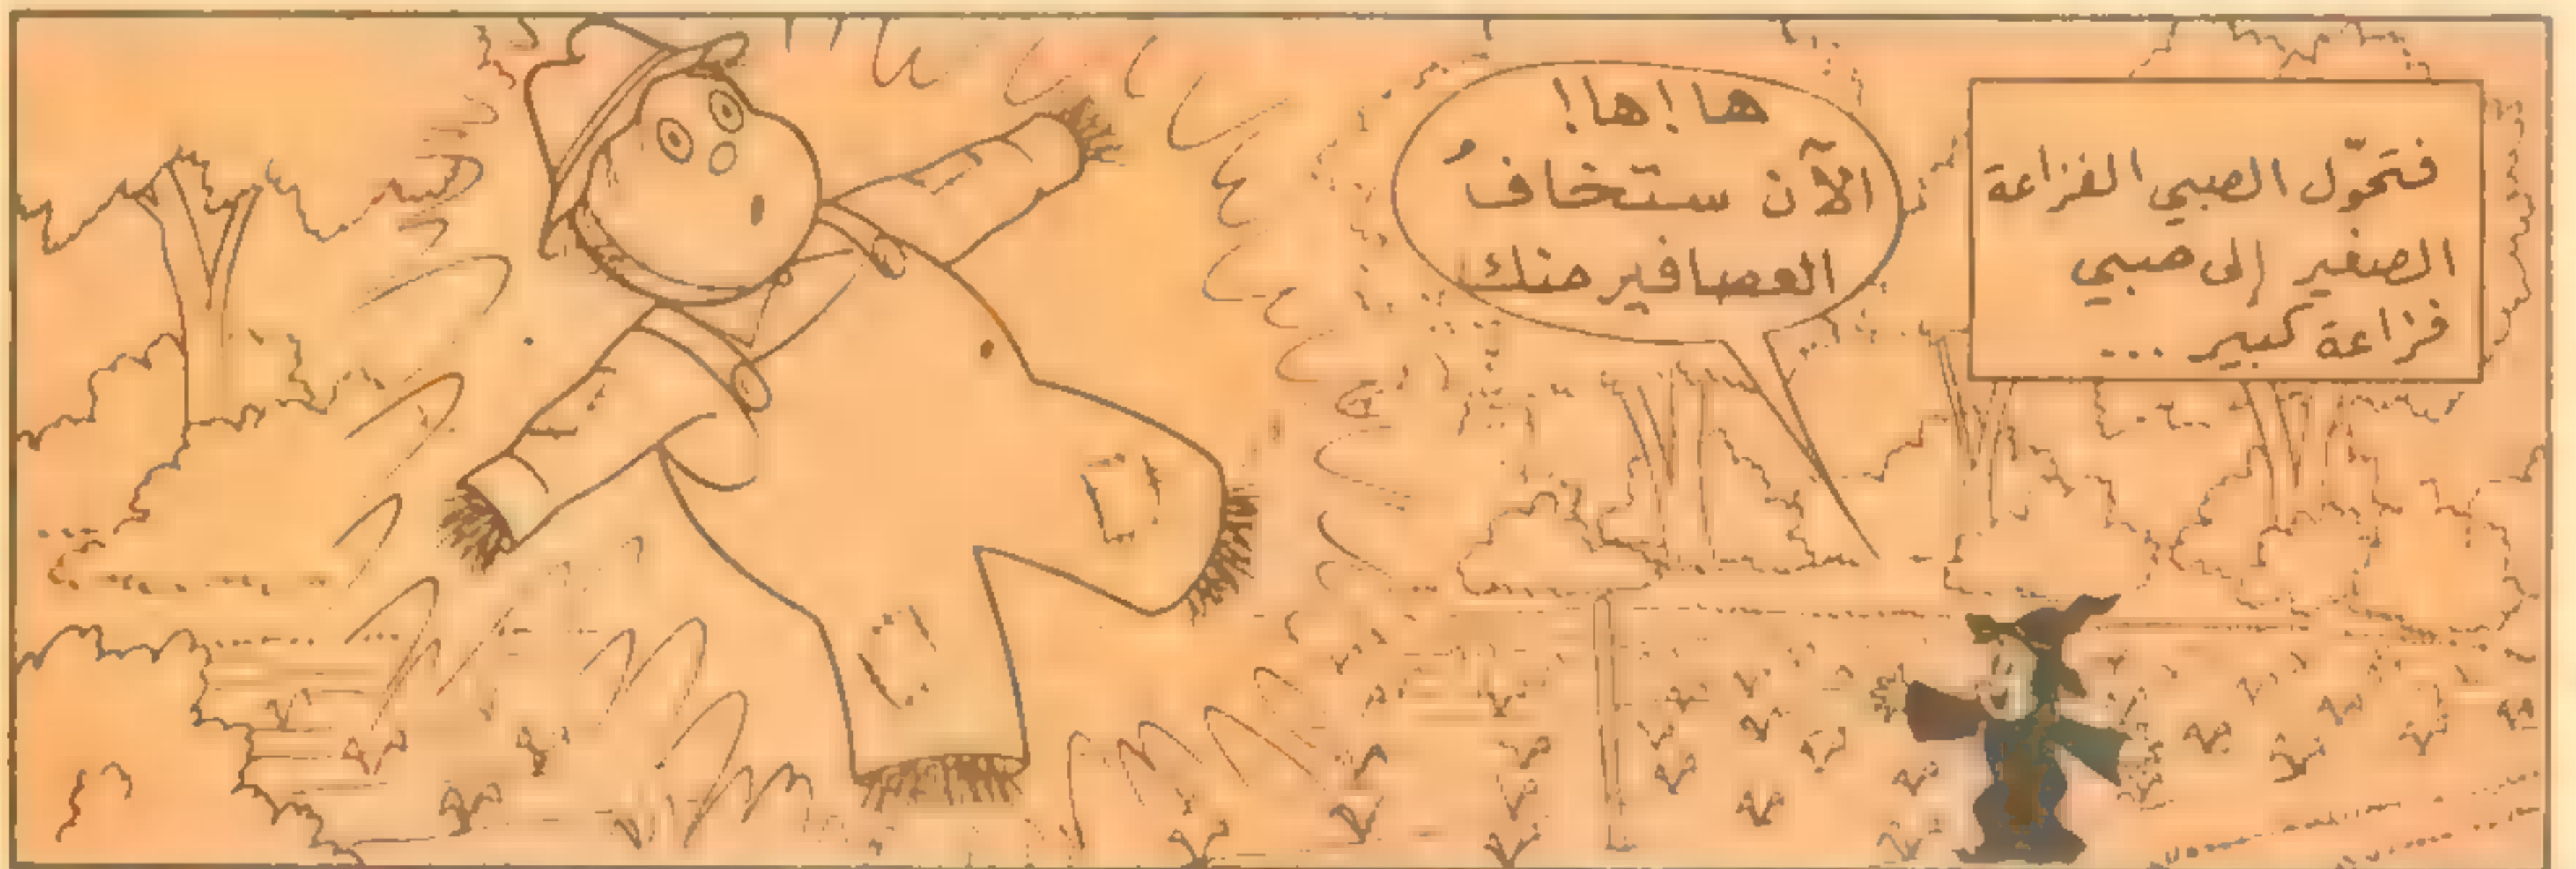 فتحوّل الصبي الفزاعة
الصغير إلى صبي
فزاعة كبير ...
ها! ها!
الآن ستخافُ
العصافير منك